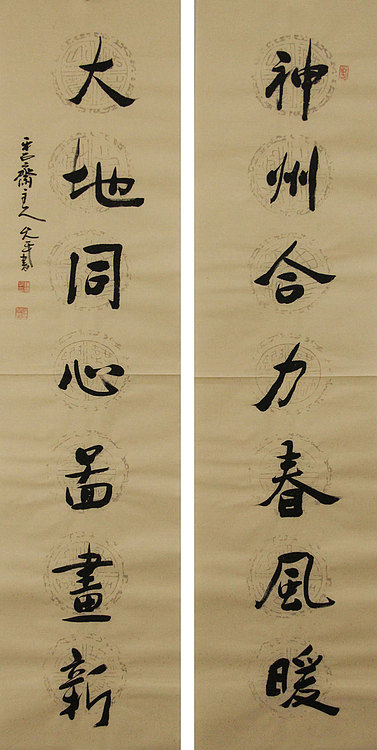 神州合力春風暖
大地同心啚畫新
齋主人 書